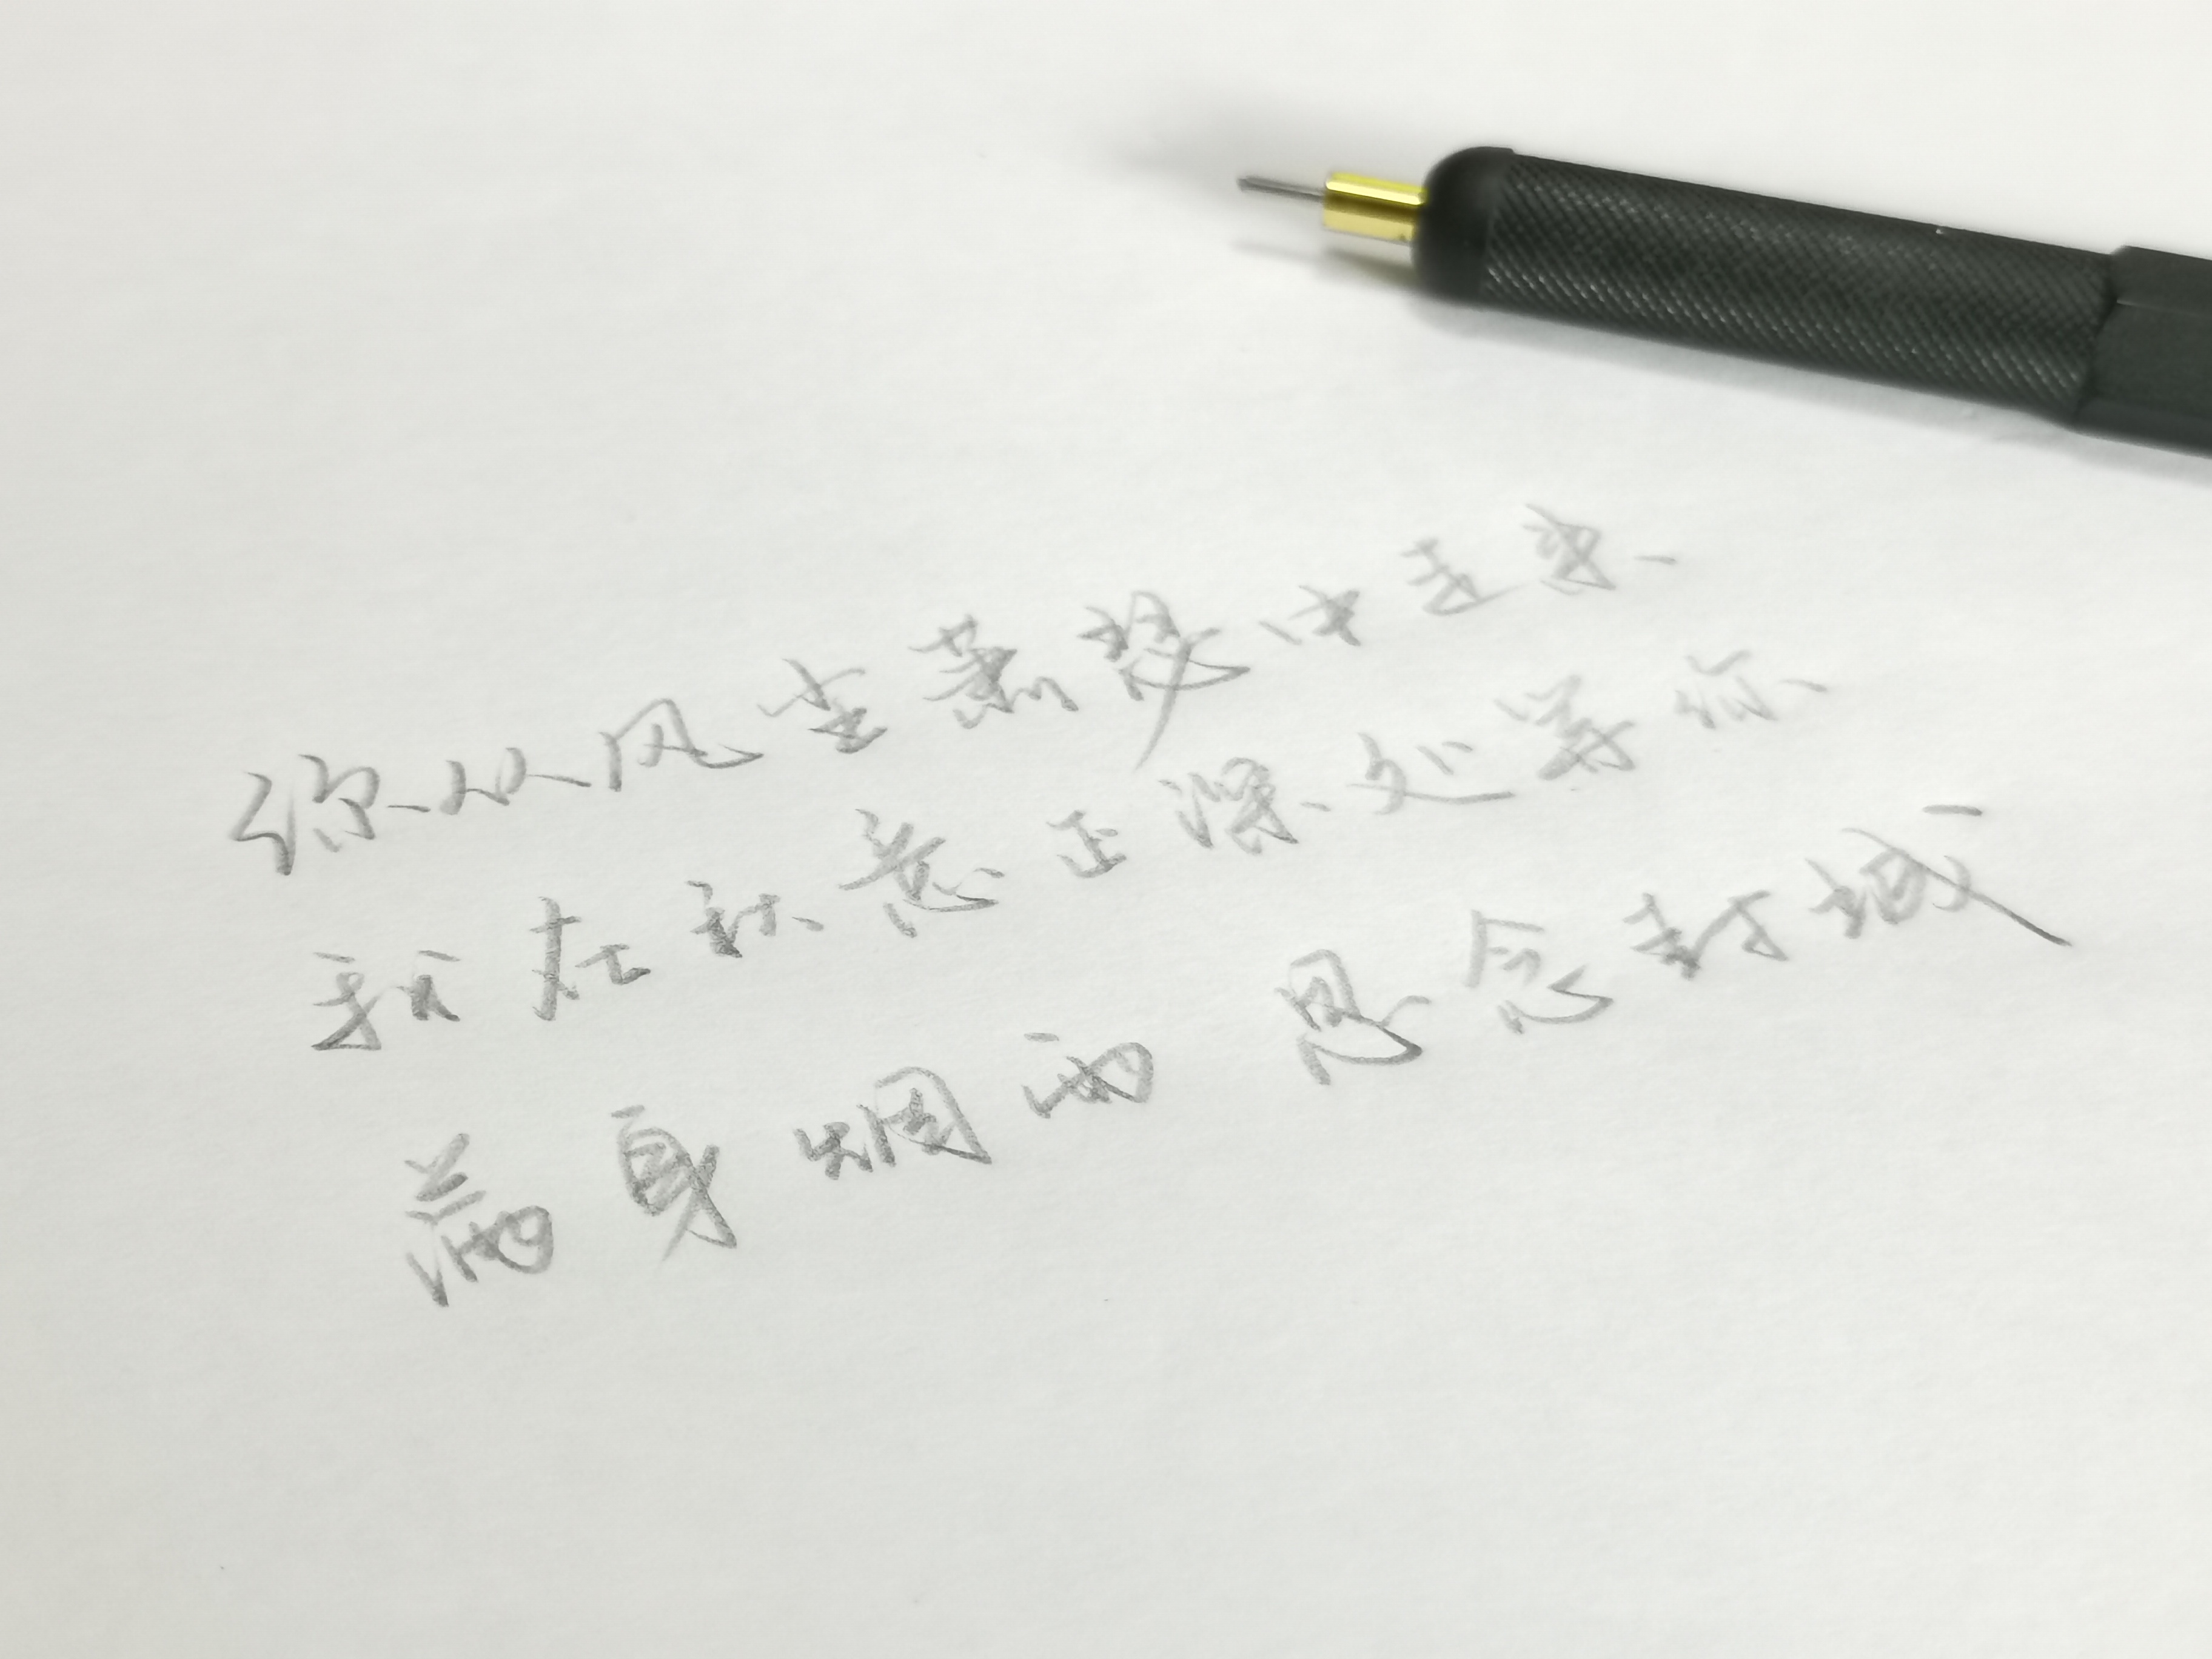 你从风尘萧瑟中走来
我在秋意正深处等你
满身烟雨 思念封城